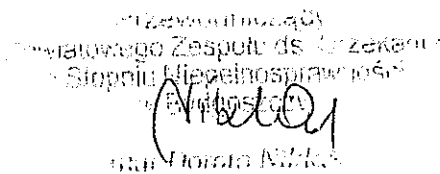 Przewodniczący
Powiatowego Zespołu ds. Orzekania
o Stopniu Niepełnosprawności
w Bydgoszczy
mgr Dorota